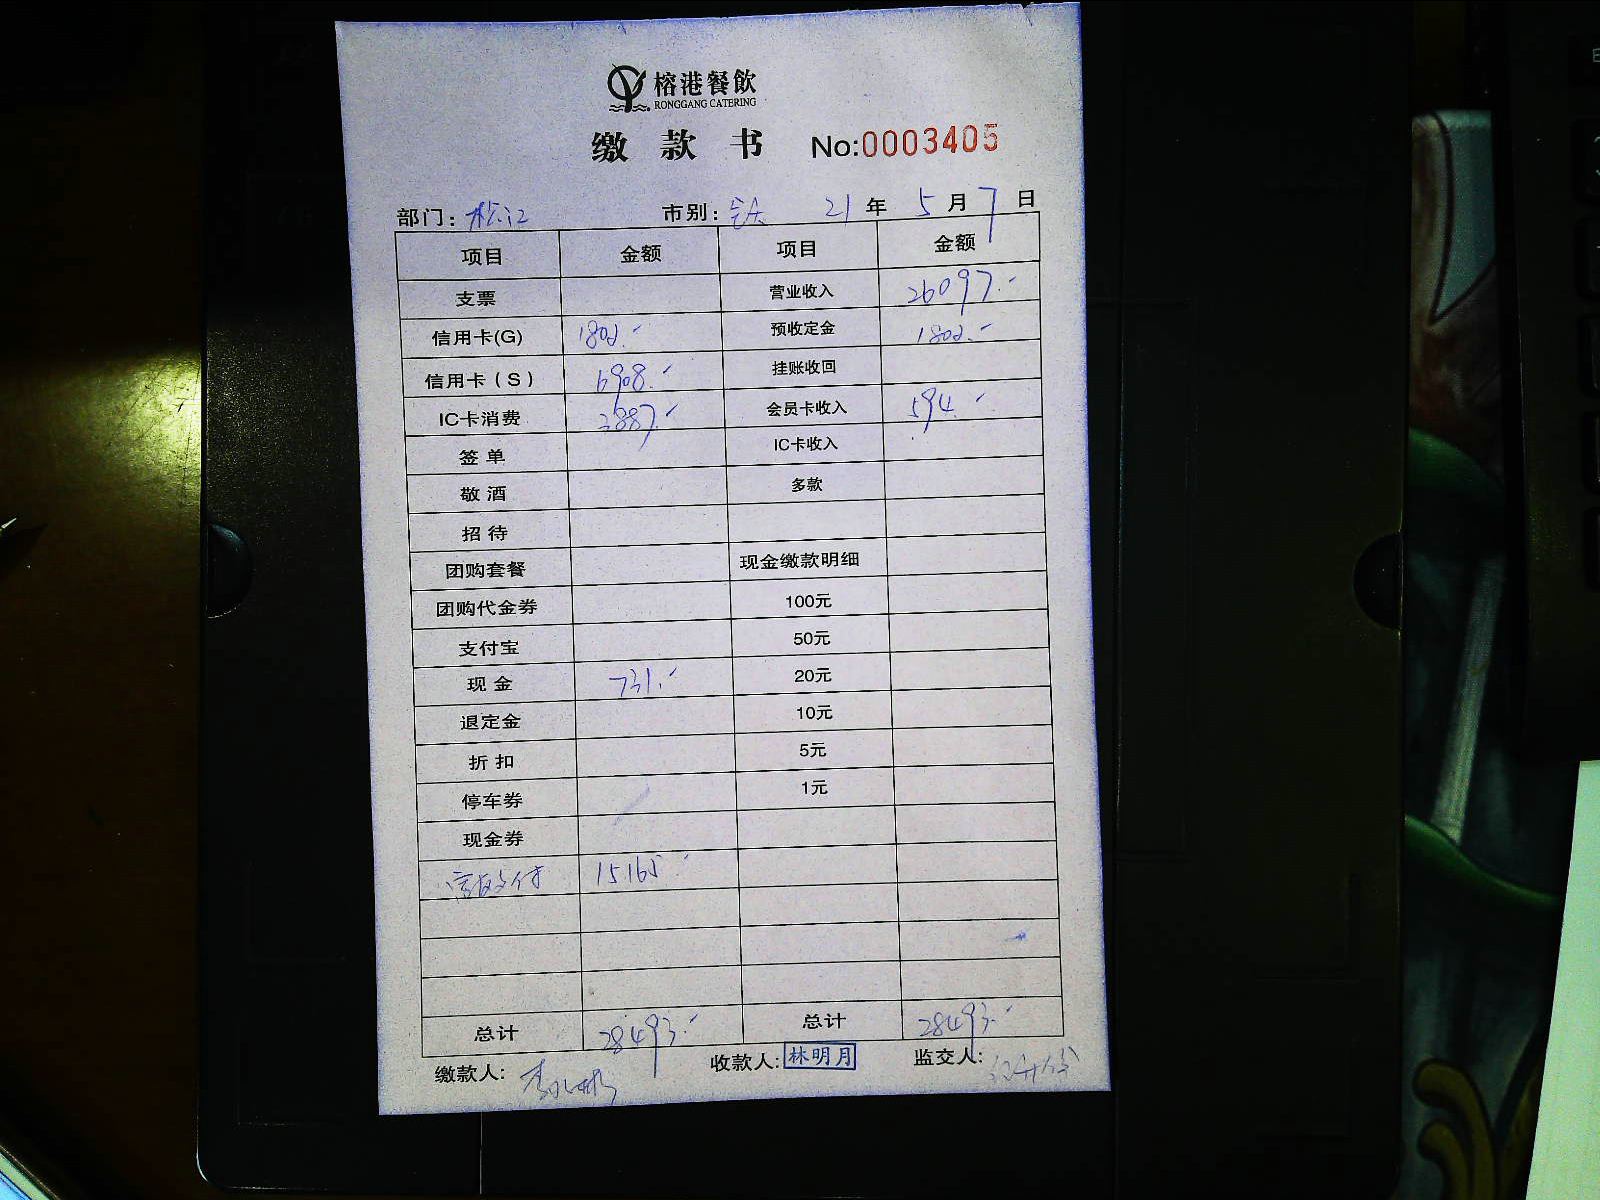 榕港餐飲
RONGGANG CATERING
缴款书 No:0003405
部门: 松江 市别: 全天 21 年 5 月 7 日
项目 金额 项目 金额
支票 营业收入 26097.-
信用卡(G) 1802.- 预收定金 1802.-
信用卡(S) 6908.- 挂账收回
IC卡消费 3887.- 会员卡收入 594.-
签单 IC卡收入
敬酒 多款
招待
团购套餐 现金缴款明细
团购代金券 100元
支付宝 50元
现金 731.- 20元
退定金 10元
折扣 5元
停车券 1元
现金券
支付 15165.-
总计 28493.- 总计 28493.-
缴款人: 收款人: 林明月 监交人: